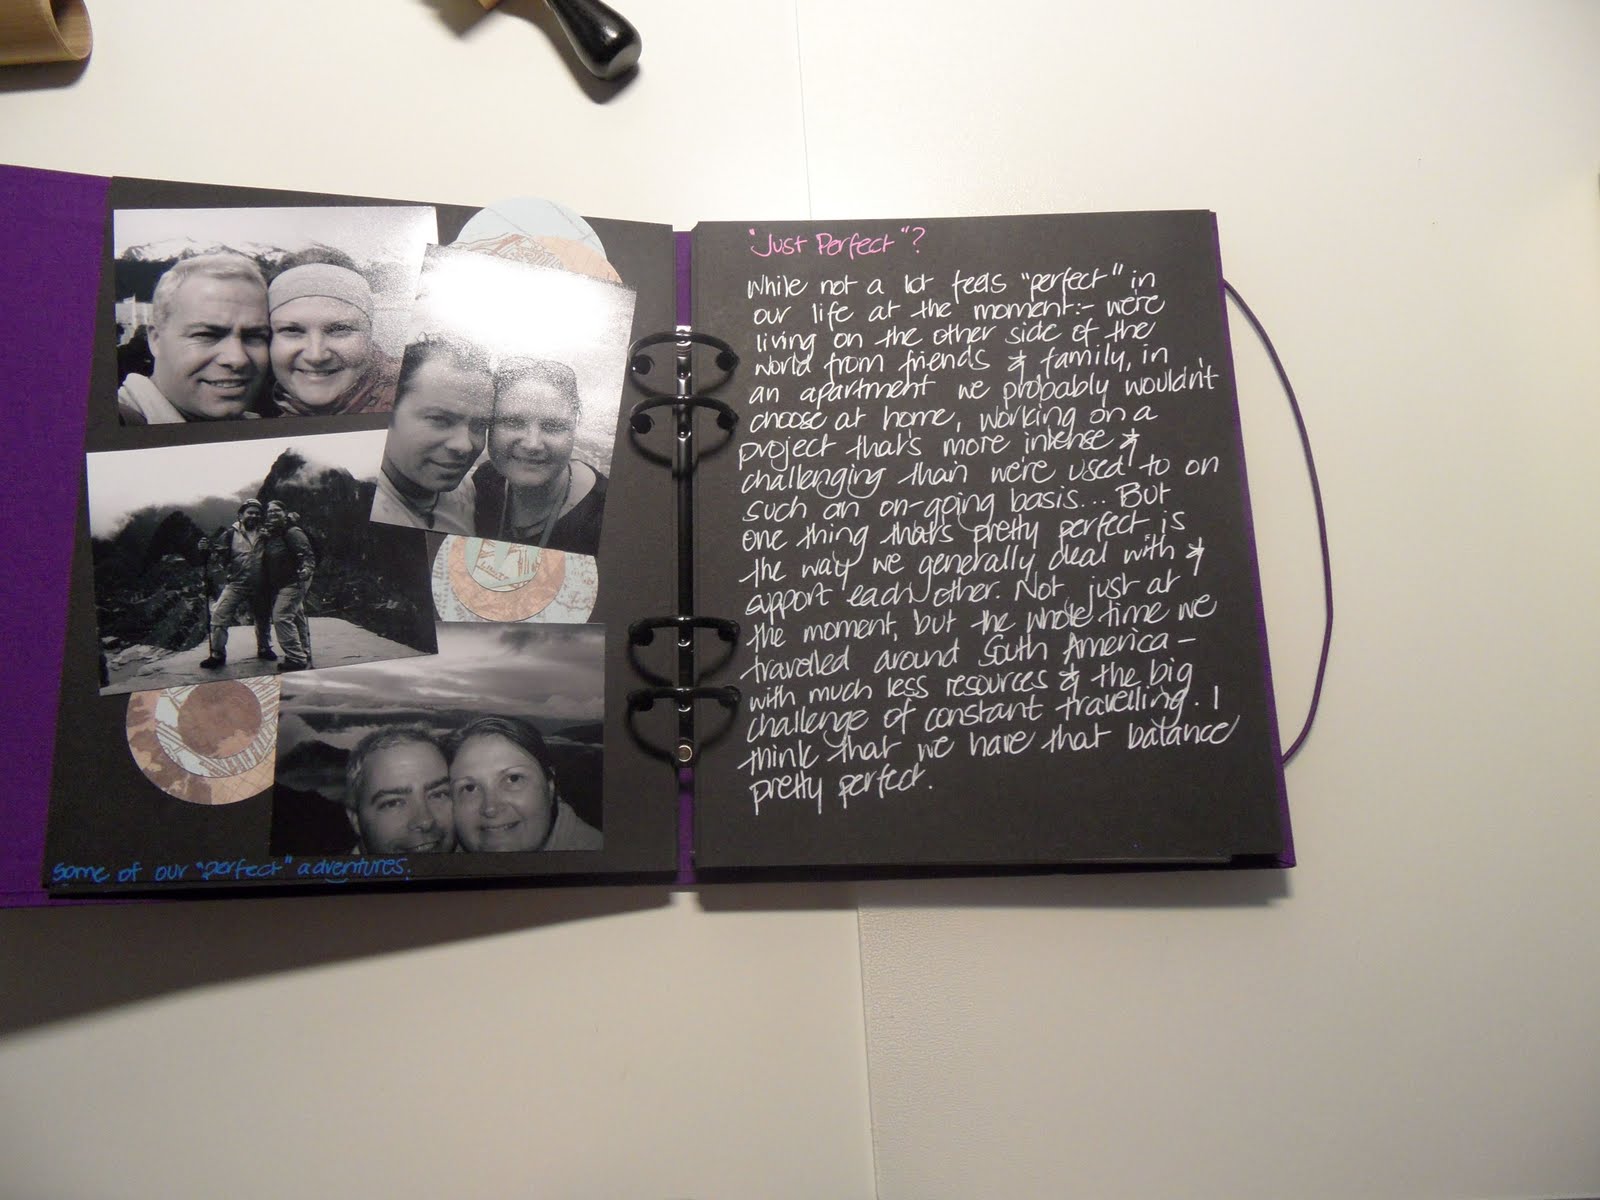 Some of our "perfect" adventures.
"Just Perfect"?
While not a lot feels "perfect" in
our life at the moment:- we're
living on the other side of the
world from friends & family, in
an apartment we probably wouldn't
choose at home, working on a
project that's more intense &
challenging than we're used to on
such an on-going basis... But
one thing that's pretty perfect is
the way we generally deal with &
support each other. Not just at
the moment, but the whole time we
travelled around South America -
with much less resources & the big
challenge of constant travelling. I
think that we have that balance
pretty perfect.